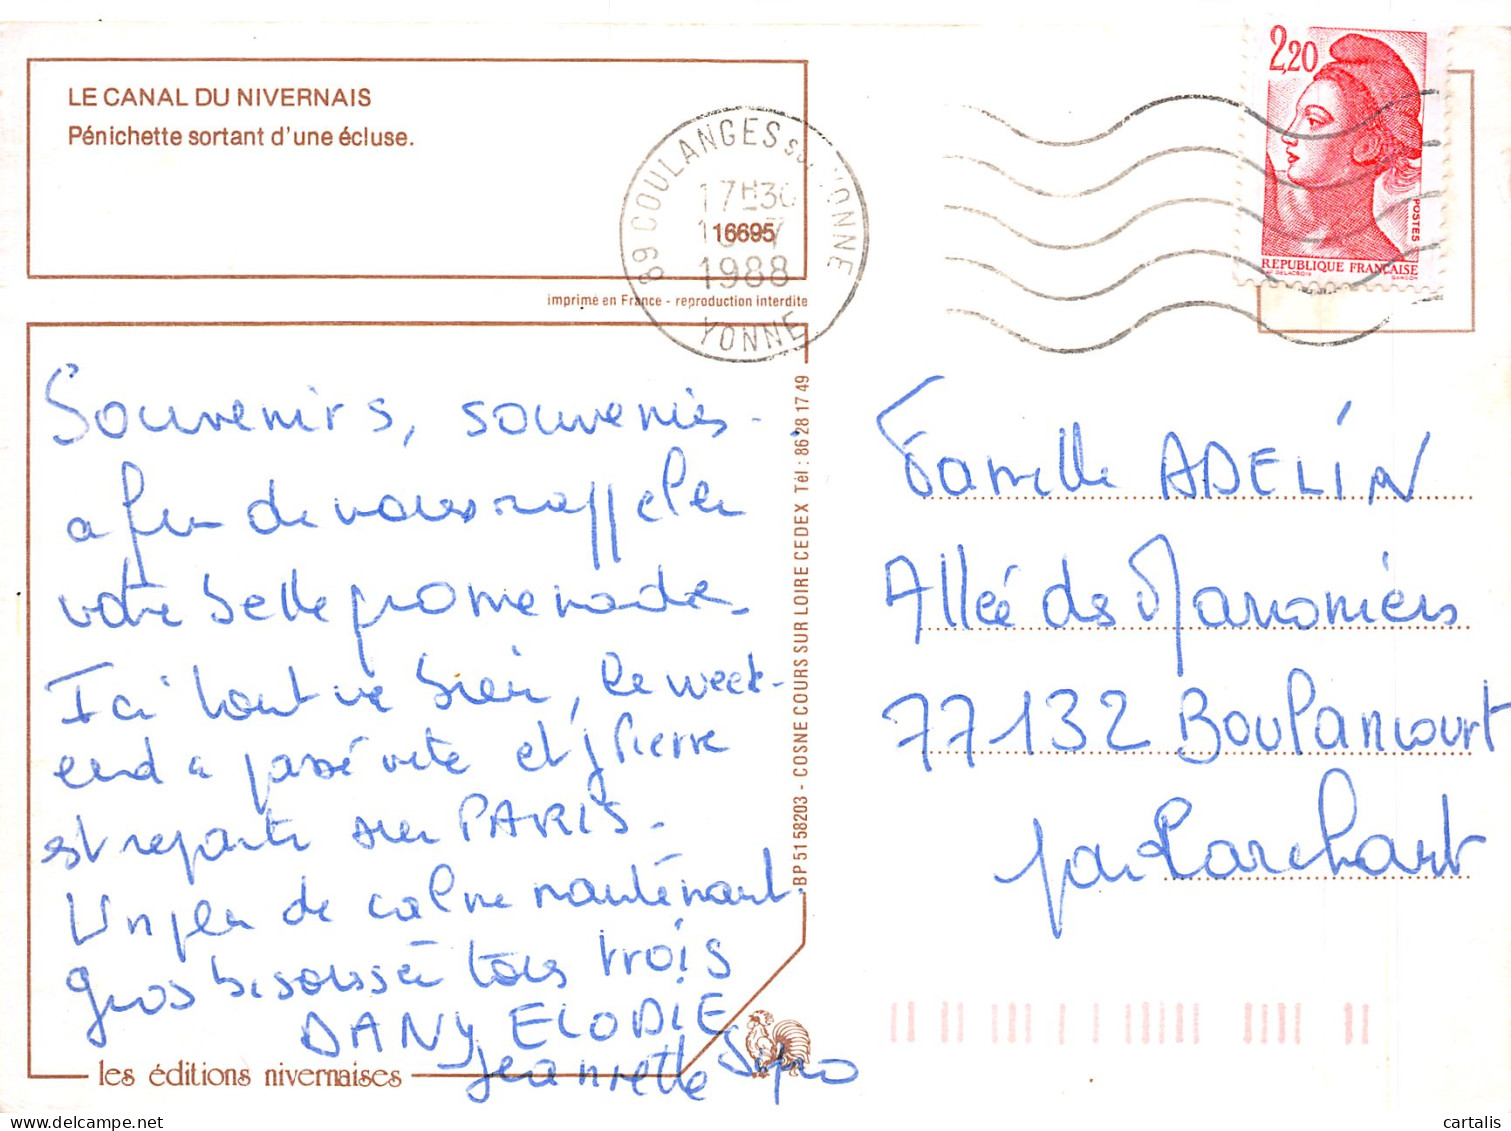 LE CANAL DU NIVERNAIS
Pénichette sortant d'une écluse.
imprimé en France - reproduction interdite
89 COULANGES sur YONNE
17H30
16695
1988
YONNE
2,20
POSTES
REPUBLIQUE FRANÇAISE
D'AP. DELACROIX GANDON
Souvenirs, souvenirs -
afin de nous rappeler
votre belle promenade.
Ici tout va bien, le week-
end a passé vite et Pierre
est reparti sur PARIS.
Un peu de calme mainténant.
gros bisous à tous trois
DANY ELODIE
Jeannette
les éditions nivernaises
BP 51 58203 - COSNE COURS SUR LOIRE CEDEX Tél : 86 28 17 49
Famille ADELIN
Allée des Maronniers
77132 Boulancourt
par Larchant
cartalis